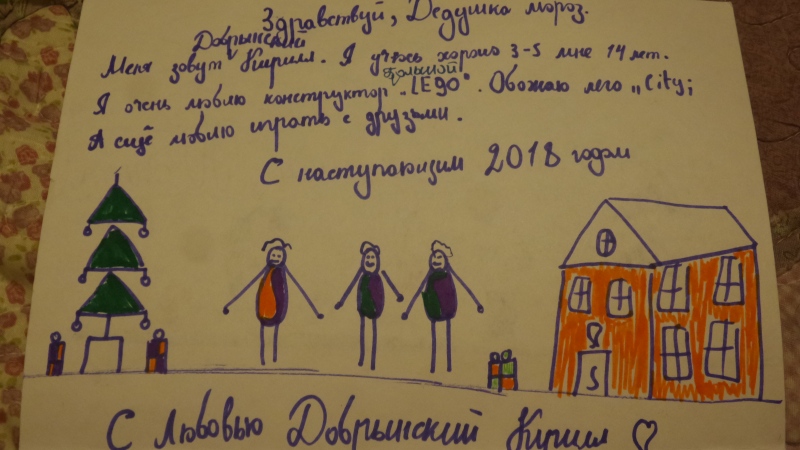 Здравствуй, Дедушка мороз.
Добрынский
Меня зовут Кирилл. Я учюсь хорошо 3-5 мне 14 лет.
большой
Я очень люблю конструктор „LEgo". Обожаю лего „City;
Я ещё люблю играть с друзьями.
С наступающим 2018 годом
С Любовью Добрынский Кирилл